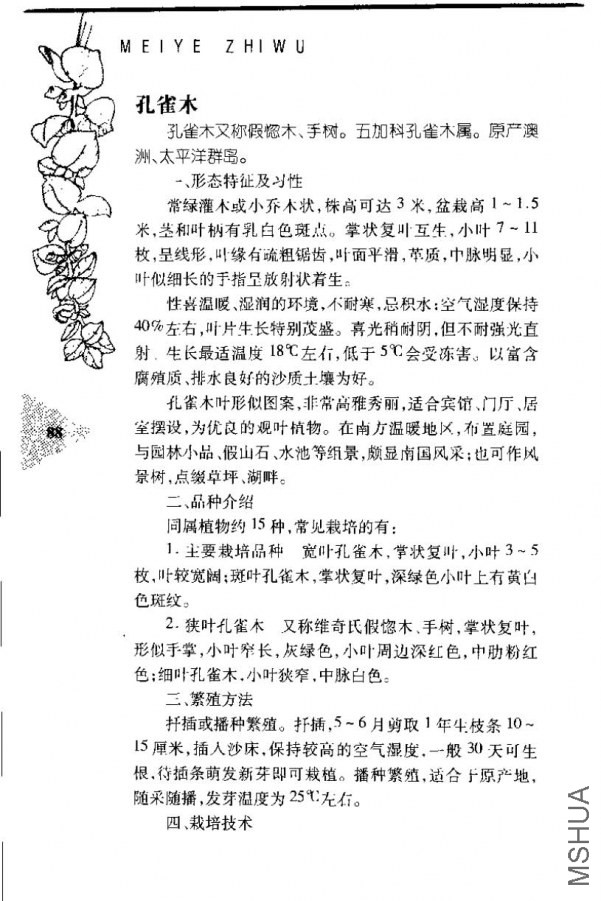 MEIYE ZHIWU
孔雀木
孔雀木又称假惚木、手树。五加科孔雀木属。原产澳
洲、太平洋群岛。
一、形态特征及习性
常绿灌木或小乔木状,株高可达 3 米,盆栽高 1~1.5
米,茎和叶柄有乳白色斑点。掌状复叶互生,小叶 7~11
枚,呈线形,叶缘有疏粗锯齿,叶面平滑,革质,中脉明显,小
叶似细长的手指呈放射状着生。
性喜温暖、湿润的环境,不耐寒,忌积水;空气湿度保持
40%左右,叶片生长特别茂盛。喜光稍耐阴,但不耐强光直
射。生长最适温度 18℃左右,低于 5℃会受冻害。以富含
腐殖质、排水良好的沙质土壤为好。
孔雀木叶形似图案,非常高雅秀丽,适合宾馆、门厅、居
室摆设,为优良的观叶植物。在南方温暖地区,布置庭园,
与园林小品、假山石、水池等组景,颇显南国风采;也可作风
景树,点缀草坪、湖畔。
88
二、品种介绍
同属植物约 15 种,常见栽培的有:
1. 主要栽培品种 宽叶孔雀木,掌状复叶,小叶 3~5
枚,叶较宽阔;斑叶孔雀木,掌状复叶,深绿色小叶上有黄白
色斑纹。
2. 狭叶孔雀木 又称维奇氏假惚木、手树,掌状复叶,
形似手掌,小叶窄长,灰绿色,小叶周边深红色,中肋粉红
色;细叶孔雀木,小叶狭窄,中脉白色。
三、繁殖方法
扦插或播种繁殖。扦插,5~6 月剪取 1 年生枝条 10~
15 厘米,插入沙床,保持较高的空气湿度,一般 30 天可生
根,待插条萌发新芽即可栽植。播种繁殖,适合于原产地,
随采随播,发芽温度为 25℃左右。
四、栽培技术
MSHUA